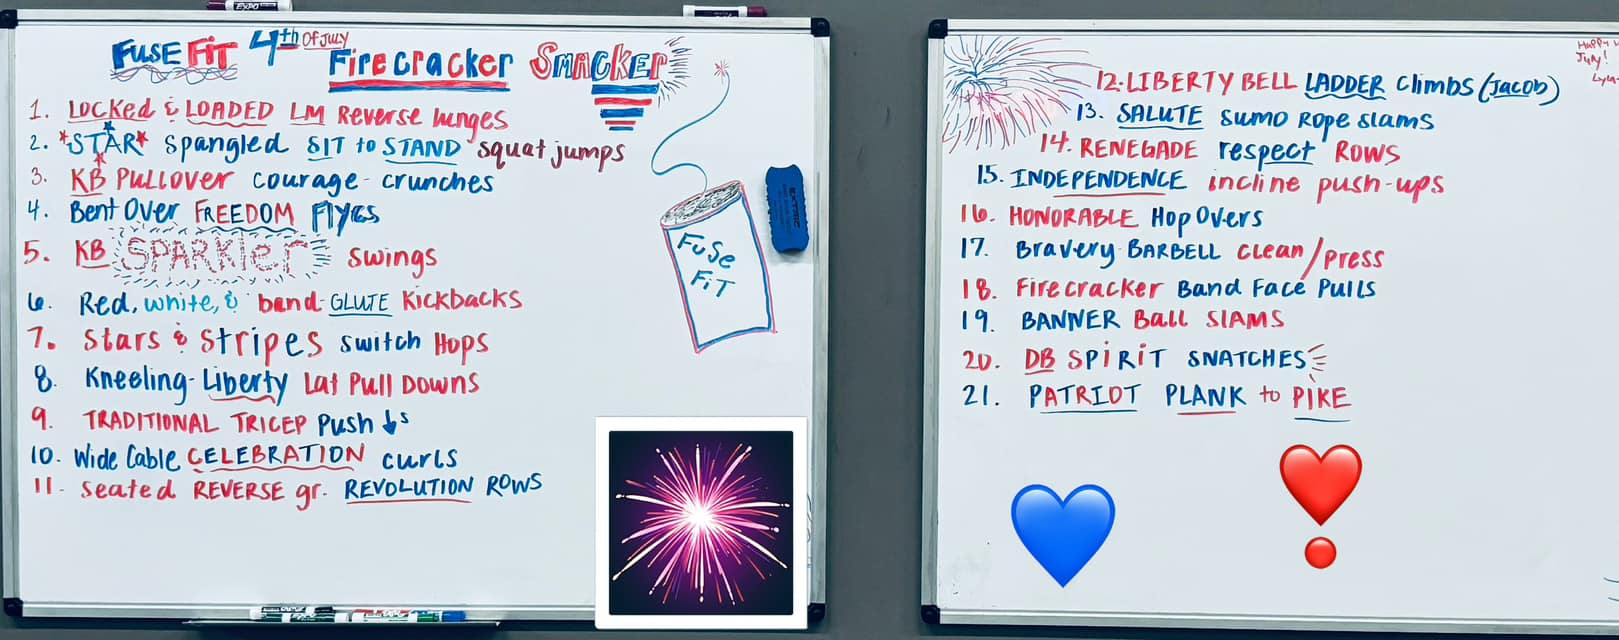 FUSE FIT 4th OF JULY
Firecracker SMACKER
1. LOCKED & LOADED LM Reverse lunges
2. *STAR* spangled SIT to STAND squat jumps
3. KB PULLOVER courage-crunches
4. Bent Over FREEDOM Flyes
5. KB SPARKler swings
6. Red, white, & band-GLUTE Kickbacks
7. Stars & Stripes switch Hops
8. Kneeling-Liberty Lat Pull Downs
9. TRADITIONAL TRICEP Push ↓s
10. Wide Cable CELEBRATION curls
11. seated REVERSE gr. REVOLUTION ROWS
FUSE
FiT
EXPO
12. LIBERTY BELL LADDER climbs (Jacob)
13. SALUTE sumo Rope slams
14. RENEGADE respect ROWS
15. INDEPENDENCE incline push-ups
16. HONORABLE HopOvers
17. Bravery-BARBELL clean/press
18. Firecracker Band Face Pulls
19. BANNER Ball SLAMS
20. DB SPiRiT SNATCHES
21. PATRIOT PLANK to PIKE
Happy
July!